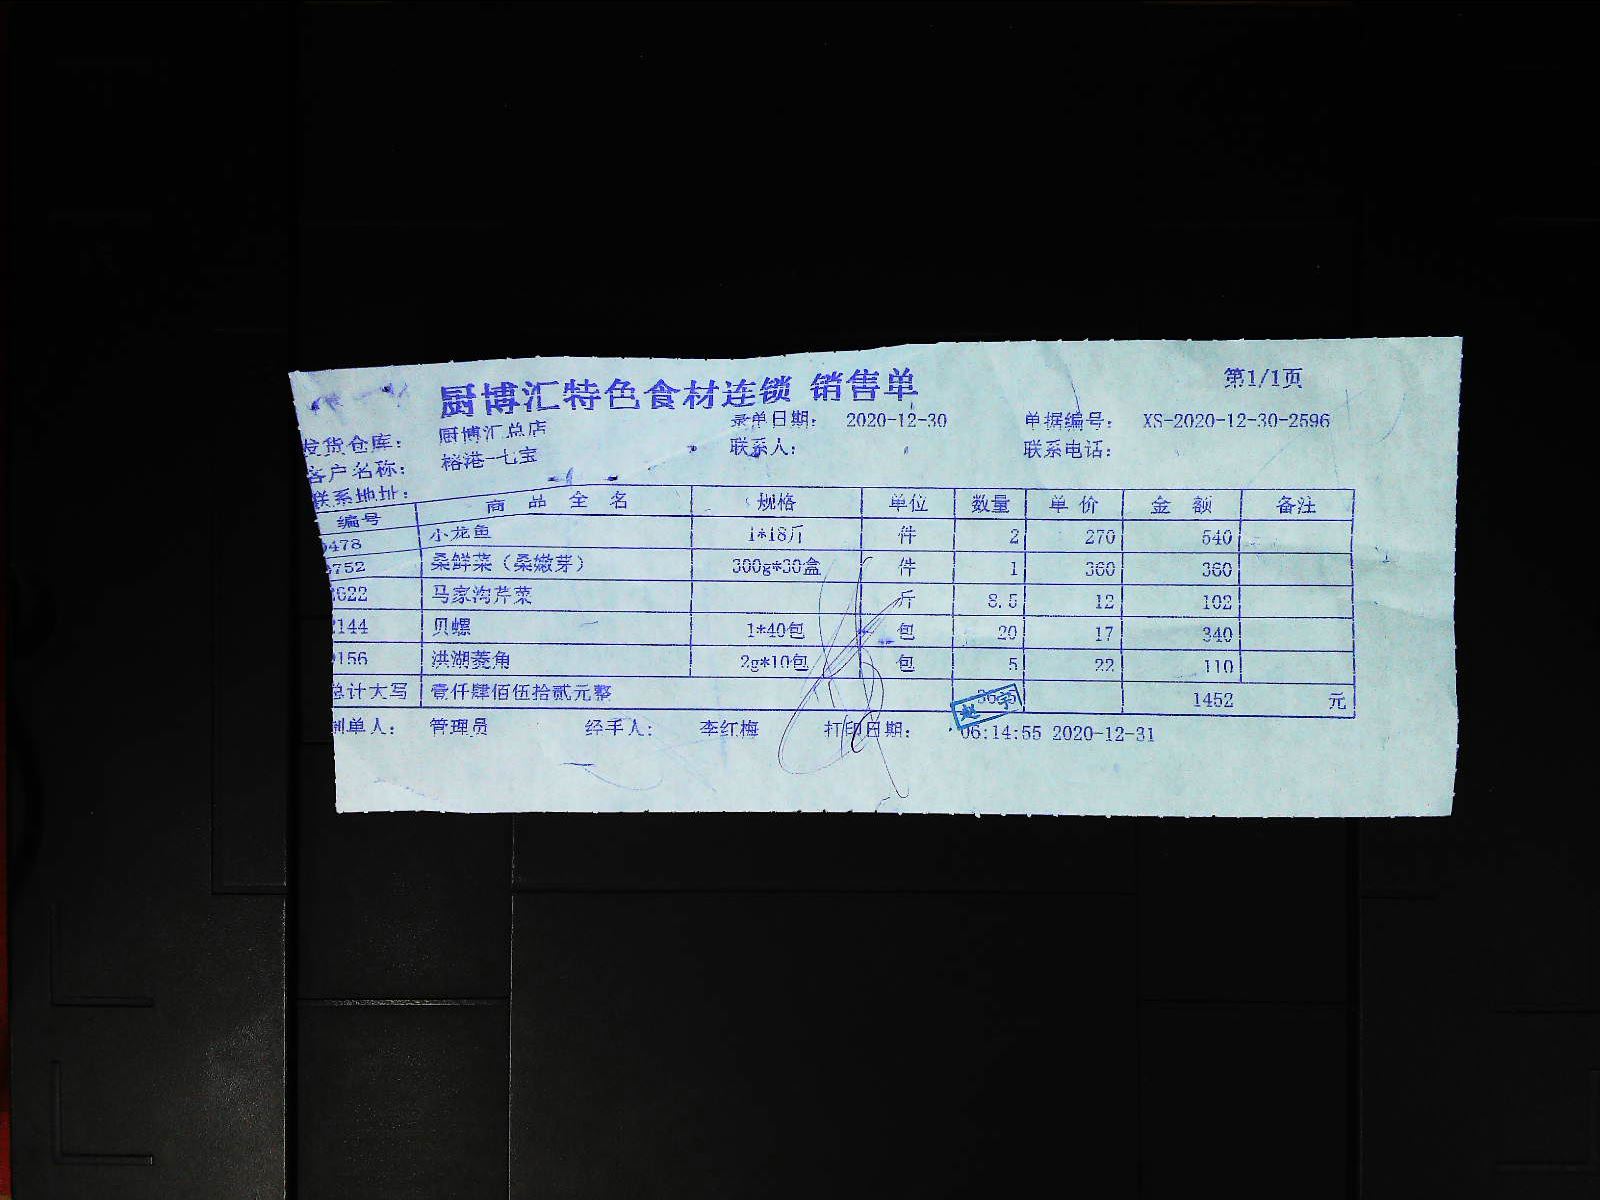 厨博汇特色食材连锁 销售单
第1/1页
发货仓库： 厨博汇总店 录单日期： 2020-12-30 单据编号： XS-2020-12-30-2596
客户名称： 榕港-七宝 联系人： 联系电话：
联系地址：
编号 商品全名 规格 单位 数量 单价 金额 备注
478 小龙鱼 1*18斤 件 2 270 540
752 桑鲜菜（桑嫩芽） 300g*30盒 件 1 360 360
622 马家沟芹菜 斤 8.5 12 102
144 贝螺 1*40包 包 20 17 340
156 洪湖菱角 2g*10包 包 5 22 110
总计大写 壹仟肆佰伍拾贰元整 36.5 1452 元
制单人： 管理员 经手人： 李红梅 打印日期： 06:14:55 2020-12-31